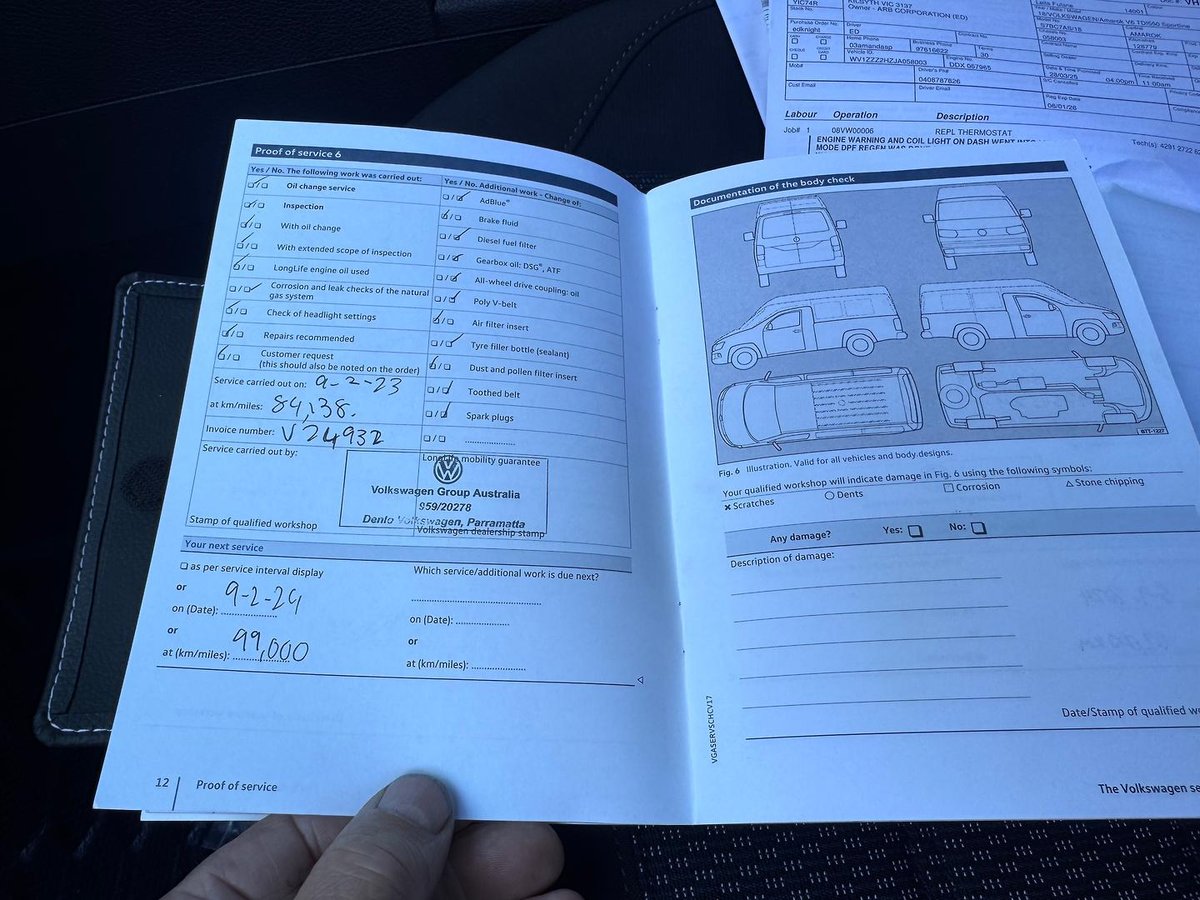 YIC74R
KILSYTH VIC 3137
Owner - ARB CORPORATION (ED)
Purchase Order No.
edknight
Driver
ED
Home Phone
03amandasp
Business Phone
97616622
Terms
30
Vehicle ID.
WV1ZZZ2HZJA058003
Engine No.
DDX 057965
Mob#
Driver's Ph#
0408787826
Cust Email
Driver Email
14001
18/VOLKSWAGEN/Amarok V6 TDI550 Sportline
S7BC7AS/18
AMAROK
058003
128779
Selling Dealer
Date & Time Promised
28/03/25
04:00pm
11:00am
Reg Exp Date
06/01/26
Labour Operation Description
Job# 1 08VW00006 REPL THERMOSTAT
Tech(s): 4291 2722
ENGINE WARNING AND COIL LIGHT ON DASH WENT
MODE DPF REGEN WAS
Proof of service 6
Yes / No. The following work was carried out:
Oil change service
Inspection
With oil change
With extended scope of inspection
LongLife engine oil used
Corrosion and leak checks of the natural
gas system
Check of headlight settings
Repairs recommended
Customer request
(this should also be noted on the order)
Service carried out on: 9-2-23
at km/miles: 84,138.
Invoice number: V24932
Service carried out by:
Stamp of qualified workshop
Yes / No. Additional work - Change of:
AdBlue®
Brake fluid
Diesel fuel filter
Gearbox oil: DSG®, ATF
All-wheel drive coupling: oil
Poly V-belt
Air filter insert
Tyre filler bottle (sealant)
Dust and pollen filter insert
Toothed belt
Spark plugs
LongLife mobility guarantee
Volkswagen Group Australia
959/20278
Denlo Volkswagen, Parramatta
Volkswagen dealership stamp
Your next service
as per service interval display
or
on (Date): 9-2-24
or
at (km/miles): 99,000
Which service/additional work is due next?
on (Date):
or
at (km/miles):
12 Proof of service
Documentation of the body check
B7T-1227
Fig. 6 Illustration. Valid for all vehicles and body designs.
Your qualified workshop will indicate damage in Fig. 6 using the following symbols:
Scratches
Dents
Corrosion
Stone chipping
Any damage? Yes: No:
Description of damage:
Date/Stamp of qualified
VGASERVSCHCV17
The Volkswagen